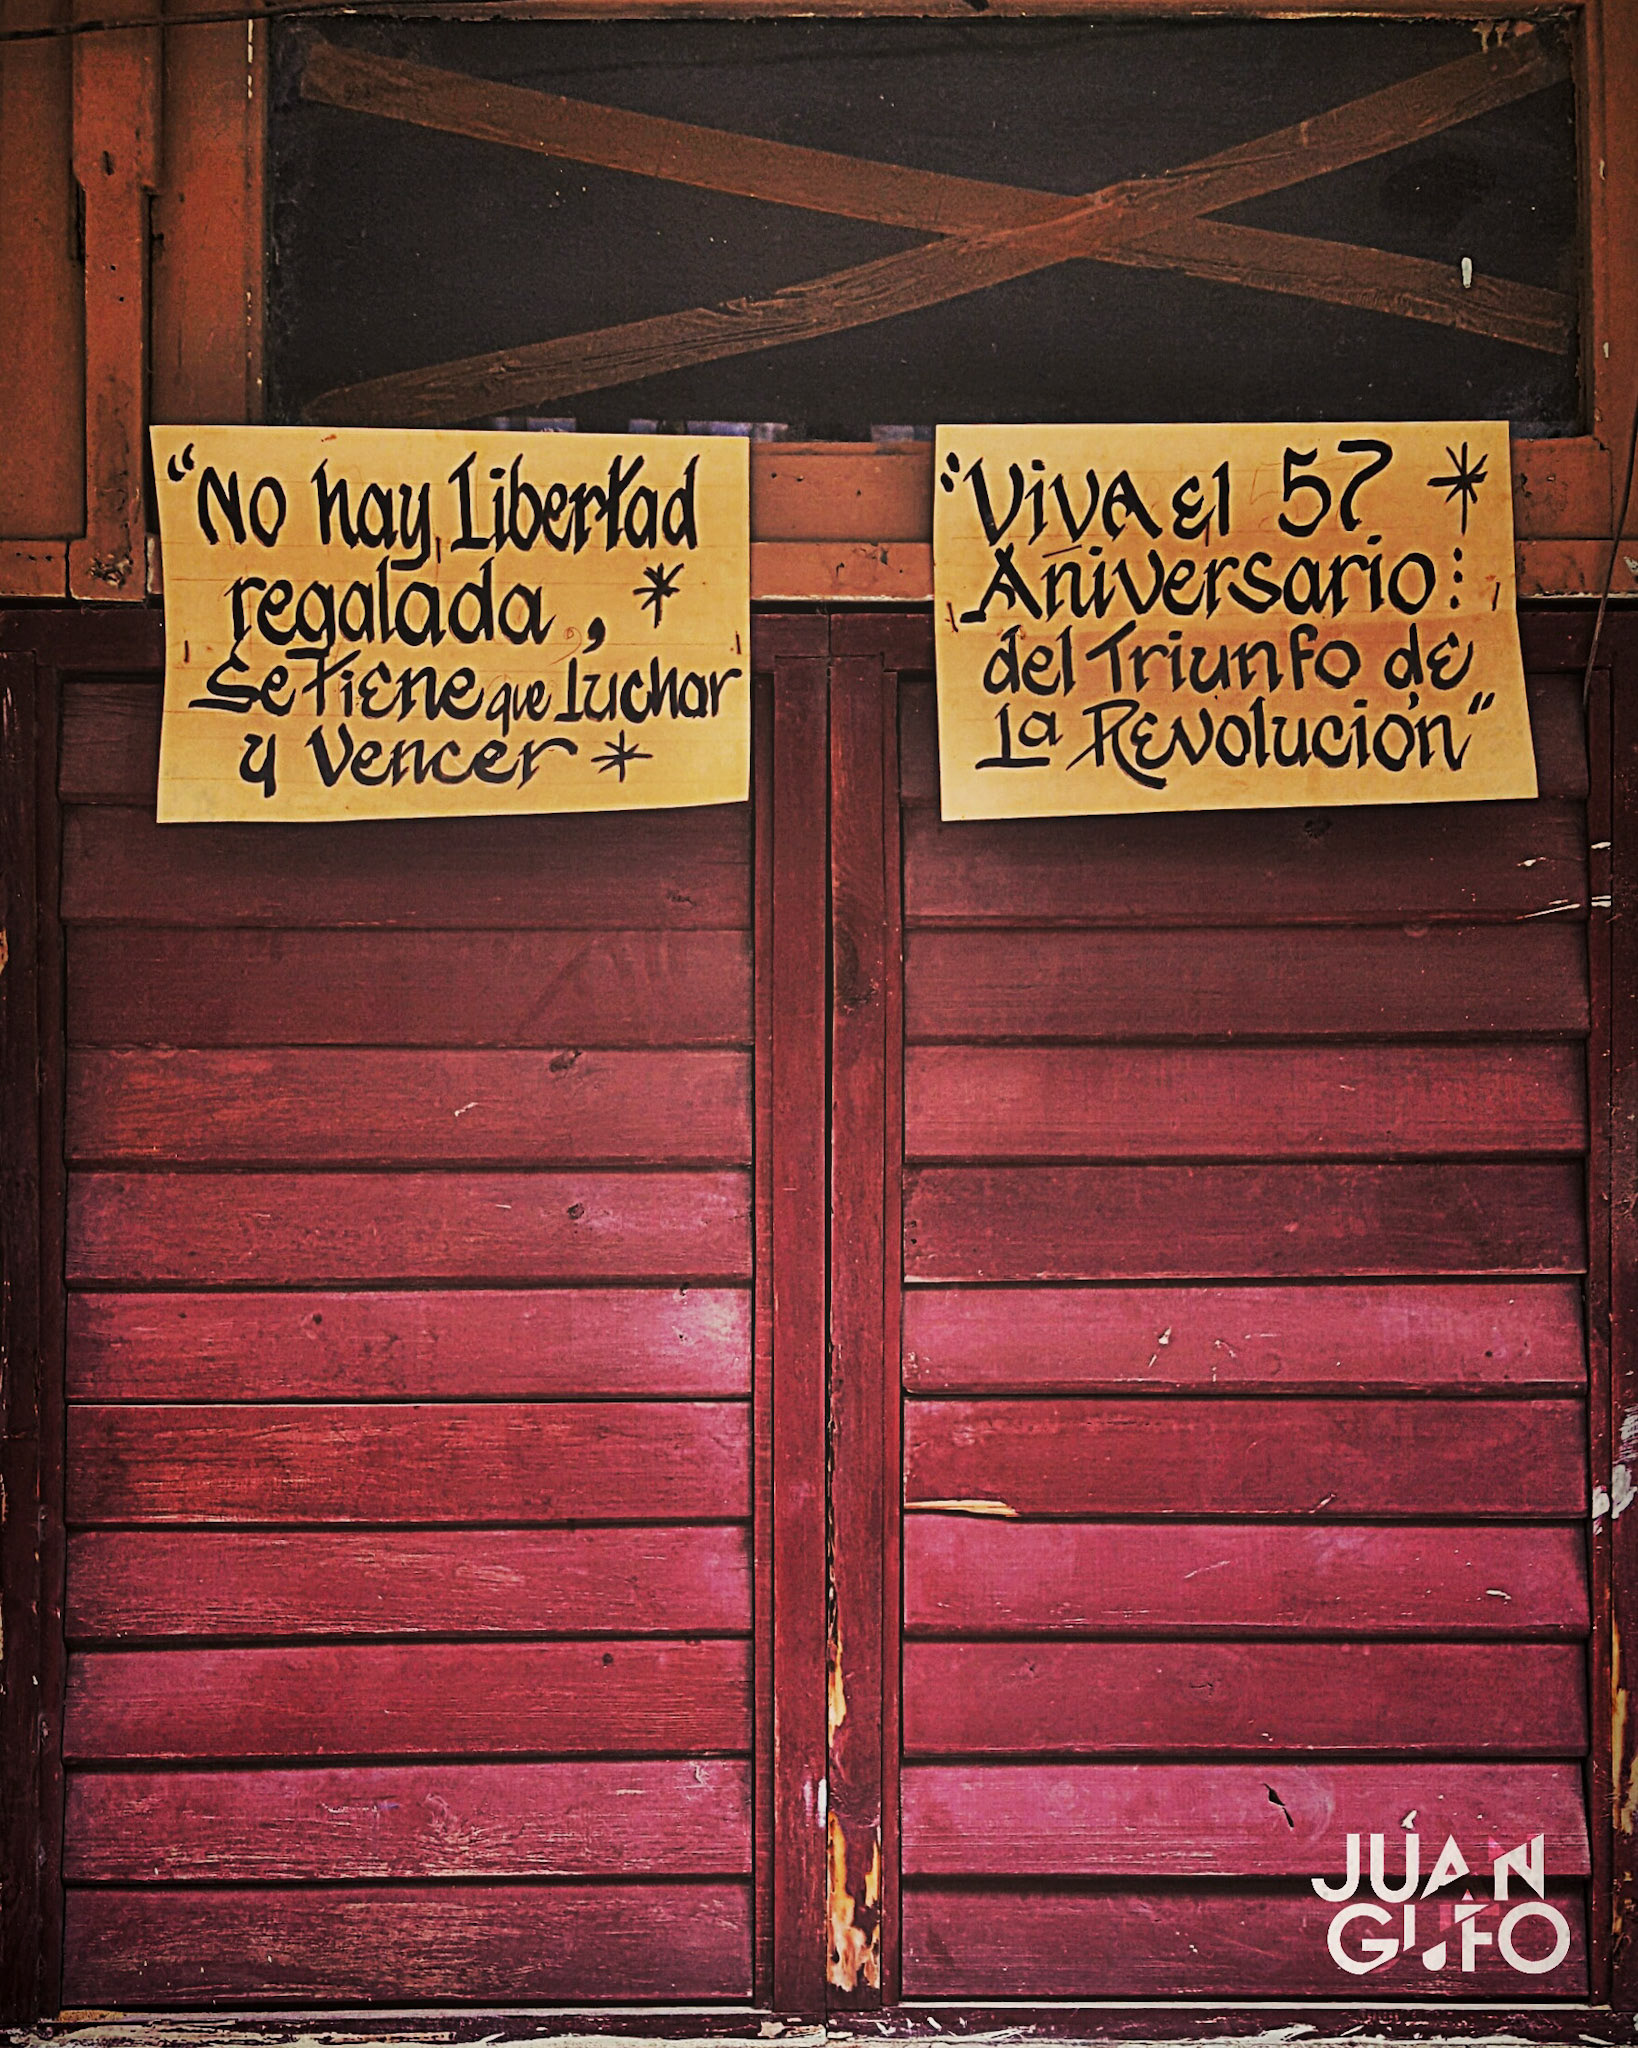 “No hay Libertad
regalada, *
se tiene que luchar
y Vencer *
"Viva el 57 *
Aniversario:
del Triunfo de
La Revolución"
JUAN
GUFO